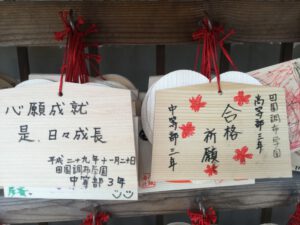 心願成就
是、日々成長
平成二十九年十一月二十日
田園調布学園
中等部3年
合格
祈願
田園調布学園
高等部三年
中等部三年